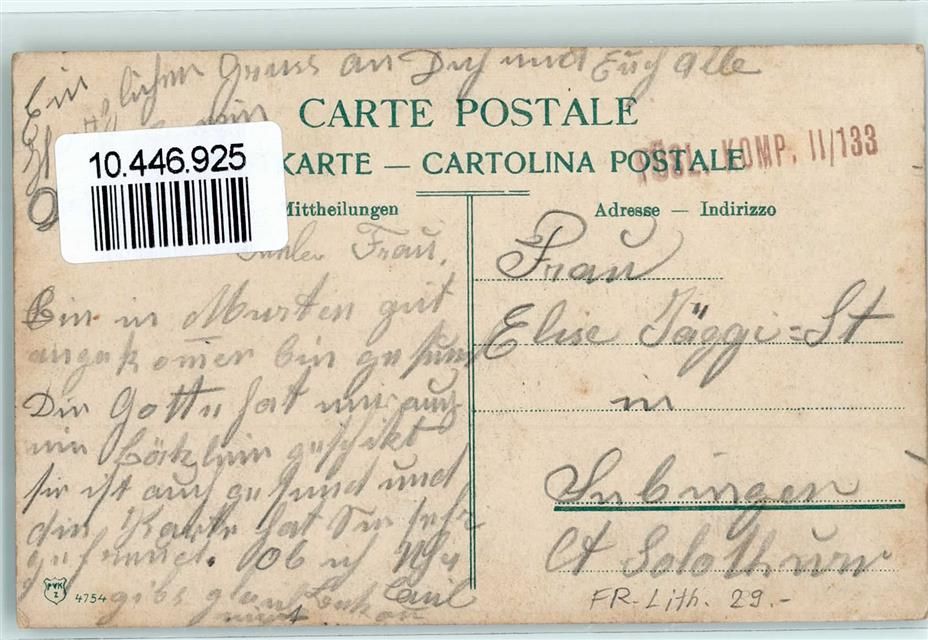 Ein lichen Gruss an Dich und Euch alle
CARTE POSTALE
KARTE — CARTOLINA POSTALE
FÜSL. KOMP. II/133
10.446.925
Mittheilungen
Adresse — Indirizzo
Frau,
Bin in Murten gut
angekom̅en bin gesund
Die Gotte hat mir auch
ein geschikt
sie ist auch gesund und
die Karte hat Sie sehr
gefreut. Ob ich
gibs
nicht
Emil
Frau
Elise Jäggi=St
in
Subingen
Ct Solothurn
PVK
Z
4754
FR-Lith. 29.-